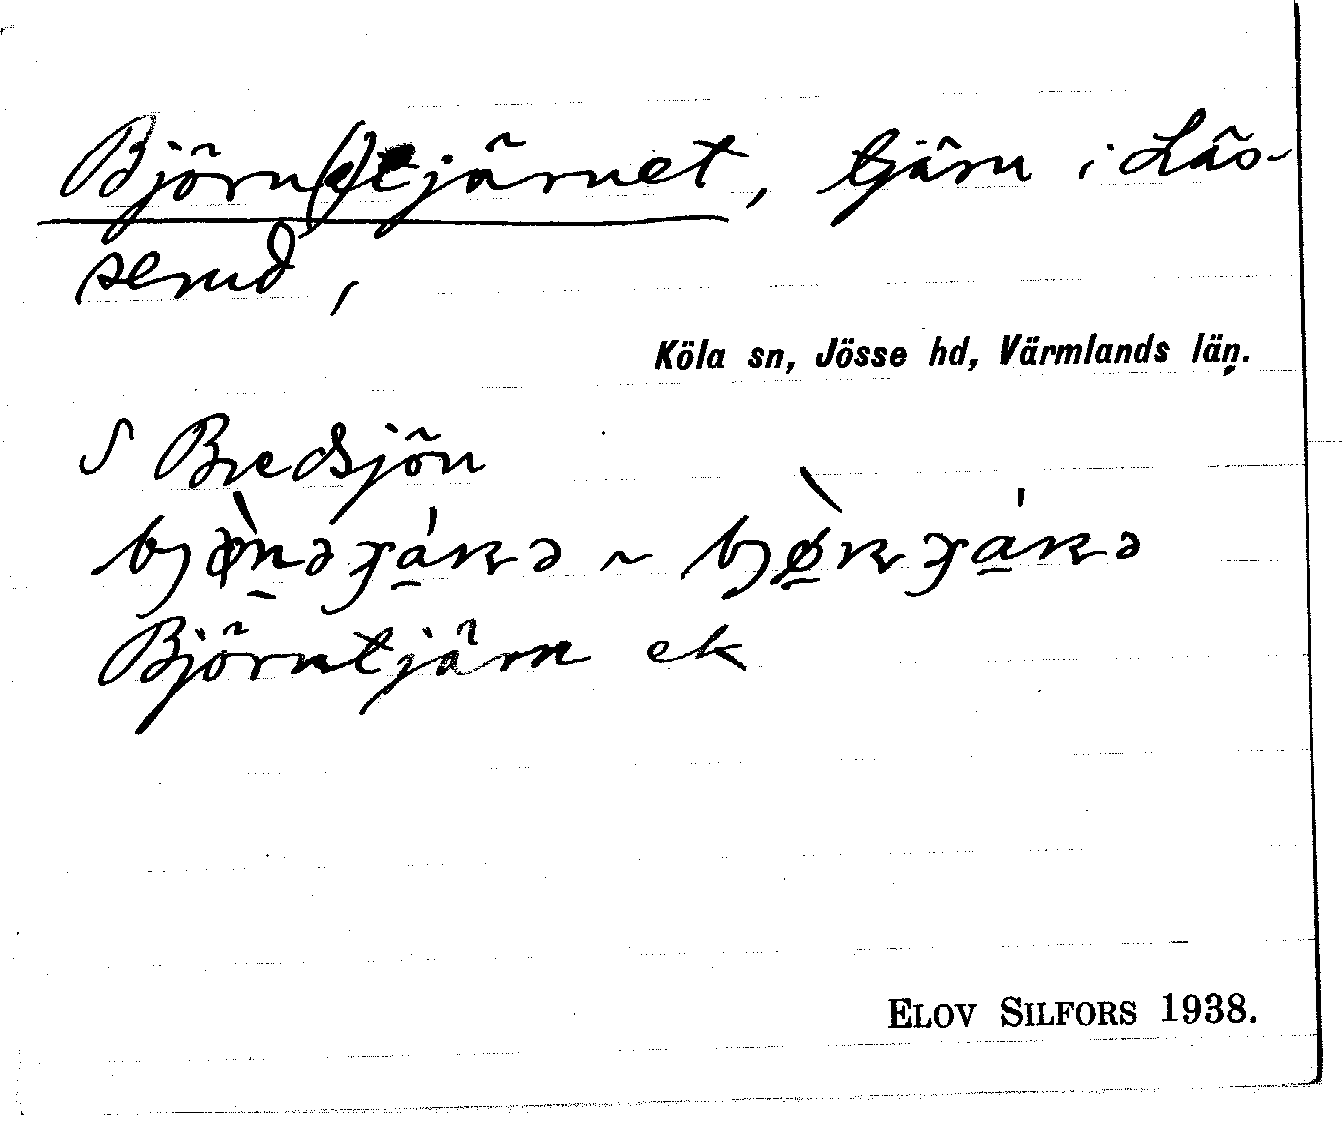 Björn(e)tjärnet, tjärn i Läs-
serud,
Köla sn, Jösse hd, Värmlands län.
S Bredsjön
Björntjärn ek
ELOV SILFORS 1938.